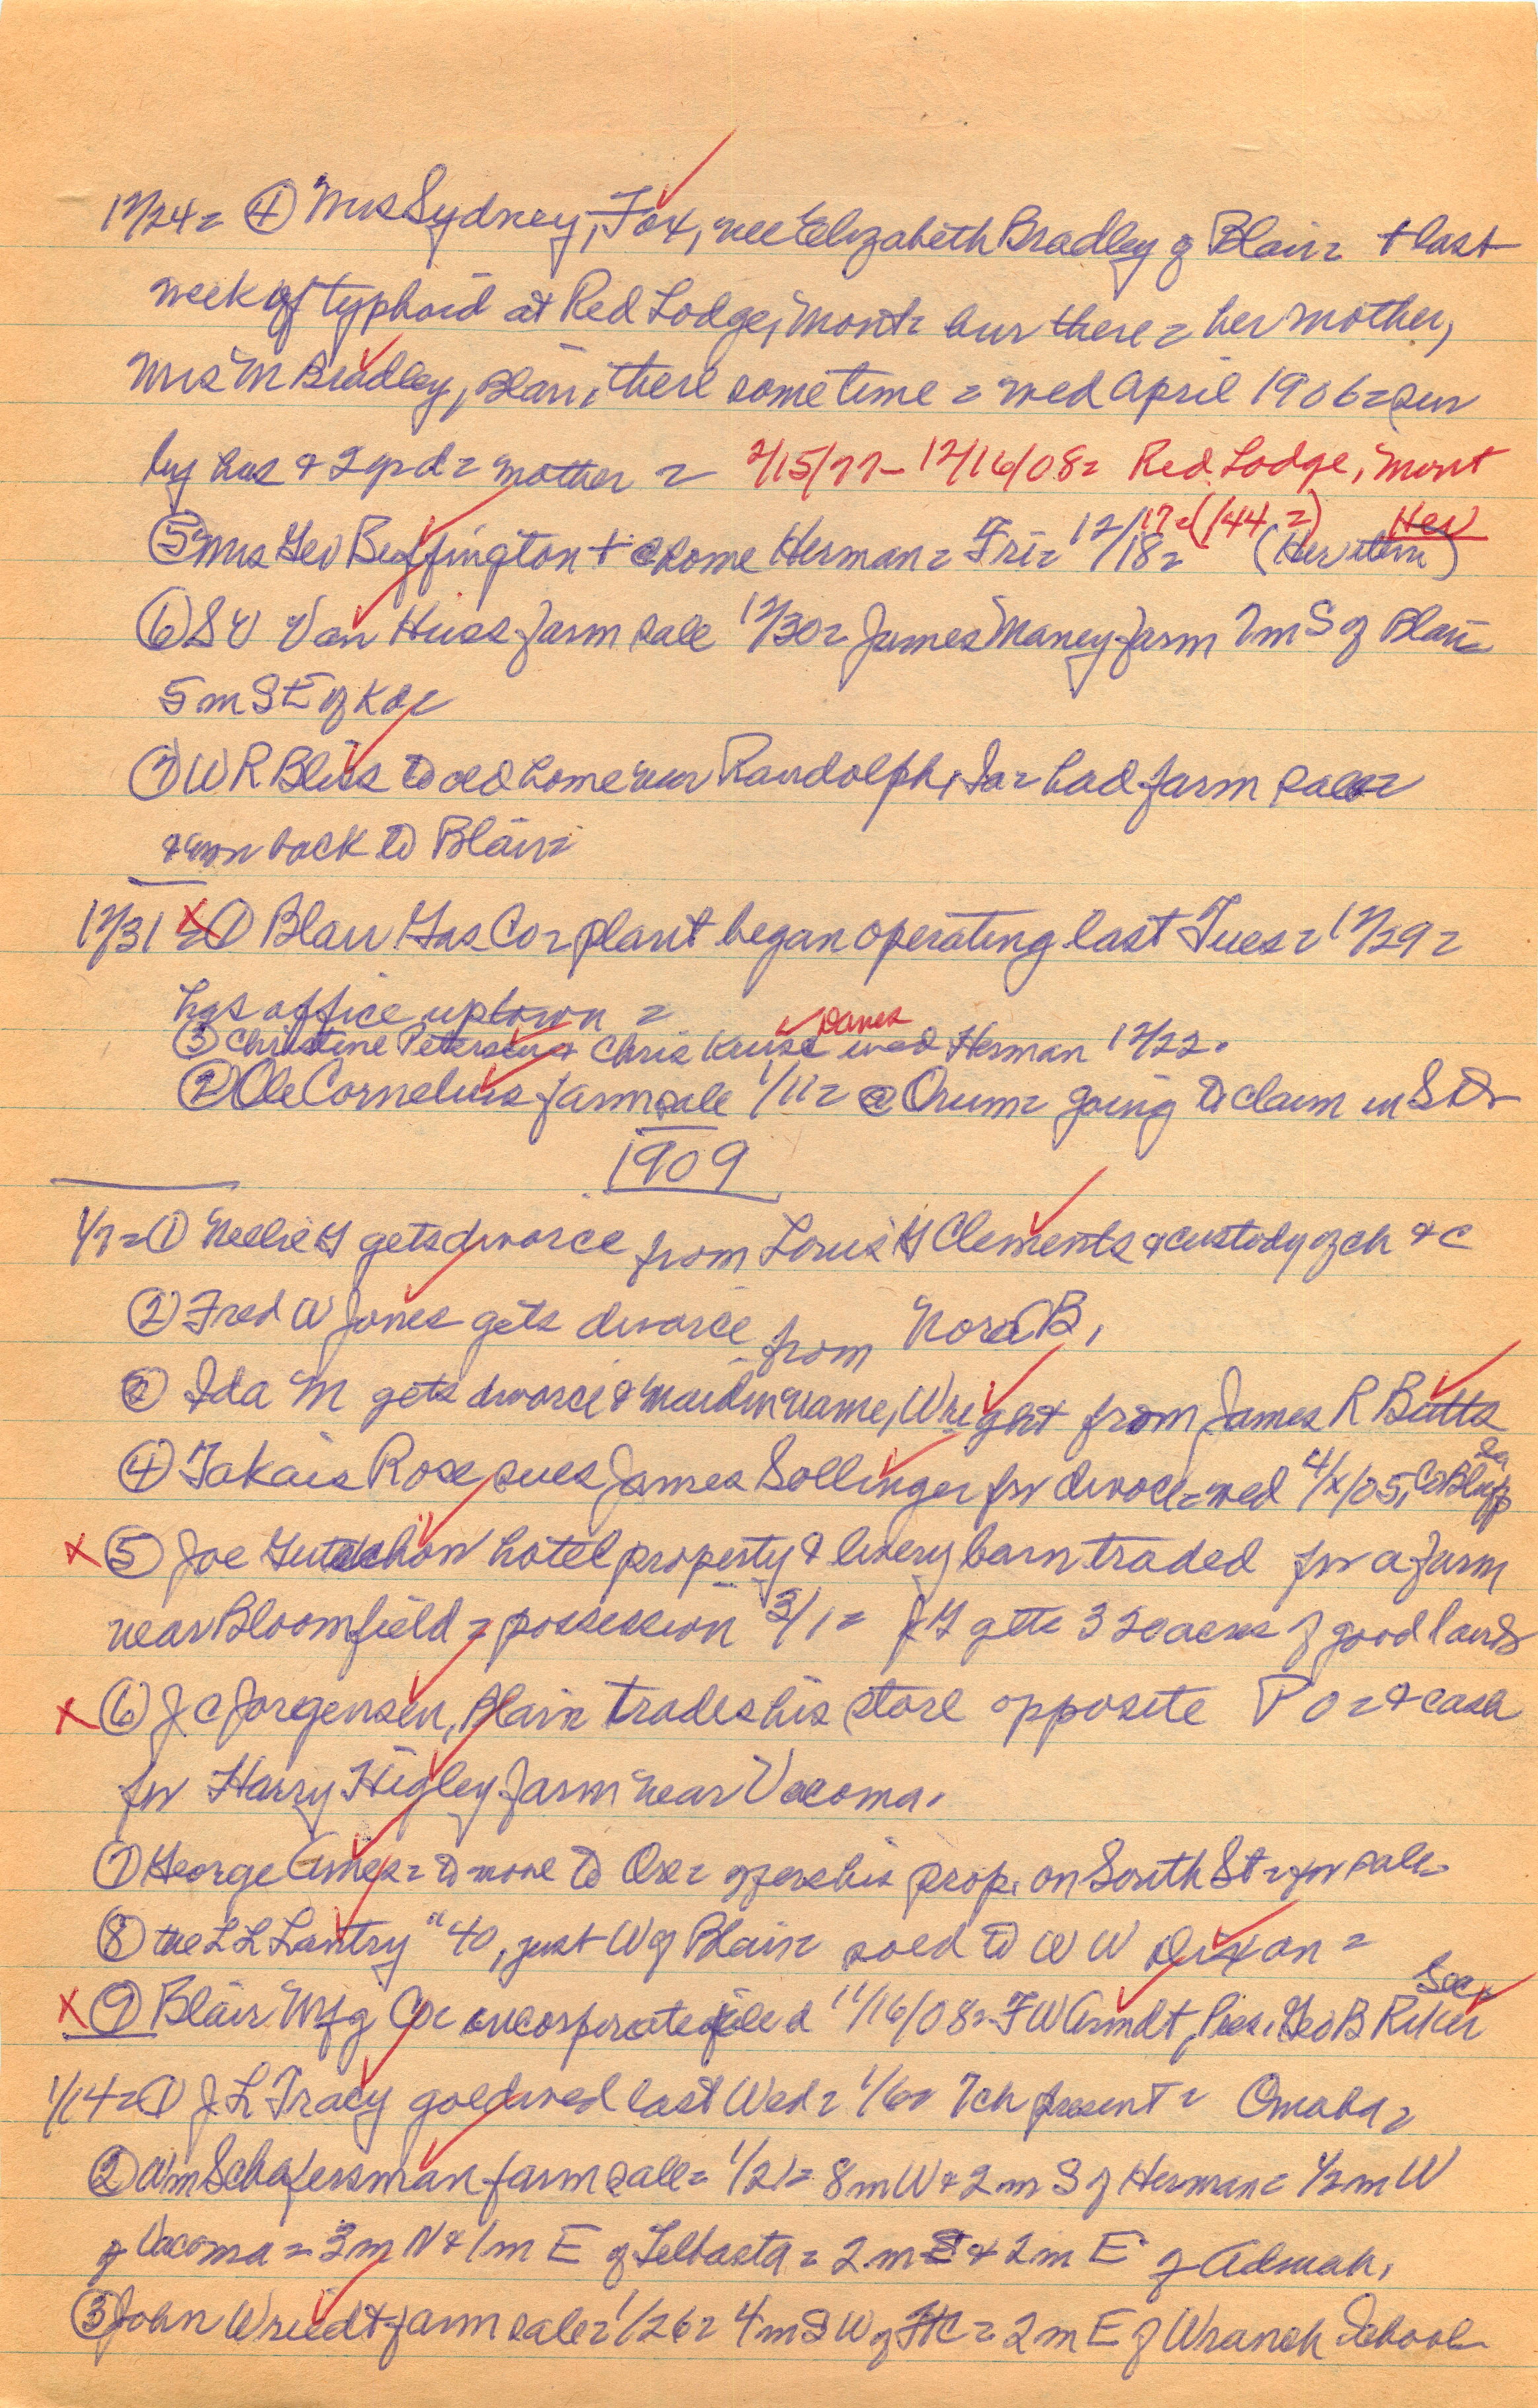 12/24= ④ Mrs Sydney Fox, nee Elizabeth Bradley of Blair= + last
week of typhoid at Red Lodge, Mont= bur there= her mother,
Mrs M Bradley, Blair, there some time= wed April 1906= sur
by hus & 2 yr d= mother = 2/15/77- 12/16/08= Red Lodge, Mont
⑤ Mrs Geo Buffington + @ home Herman= Fri= 12/18= 17=(144=) (Her item) Her
⑥ S V Van Huss farm sale 12/30= James Maney farm 7m S of Blair=
5 m SE of K
⑦ W R Bliss to old home near Randolph, Ia= had farm sale=
back to Blair=
12/31 X=① Blair Gas Co= plant began operating last Tues= 12/29=
has office uptown =
③ Christine Petersen & Chris Kruse wed Herman 12/22. Danes
② Ole Cornelius farm sale 1/11= @ Orum= going to claim in SD=
1909
1/7=① Nellie G gets divorce from Louis G Clements & custody of ch & c
② Fred W Jones gets divorce from Nora B,
③ Ida M gets divorce & maiden name, Wright from James R Butts
④ Rose sues James Sollinger for divorce= wed 4/x/05, Co Bluffs Ia
X ⑤ Joe hotel property & livery barn traded for a farm
near Bloomfield= possession 3/1= J G gets 320 acres of good land
X ⑥ J C Jorgensen, Blair trades his store opposite P O= & cash
for Harry Higley farm near Vacoma.
⑦ George Ames= to move to Ore= offers his prop. on South St= for sale
⑧ the L L Lantry "40, just W of Blair= sold to W W Dixon =
X ⑨ Blair Mfg Co= incorporated filed 11/16/08= F W Arndt, Pres. Geo B Riker Sec,
1/14=① J L Tracy gold wed last Wed= 1/6= 7 ch present = Omaha=
② Wm Schafersman farm sale= 1/21= 8m W & 2 m S of Herman= 1/2 m W
of Vacoma= 3m N & 1m E of Telbasta= 2 m S & 2 m E of Admah,
③ John Wriedt farm sale= 1/26= 4m SW of FtC= 2m E of W ranch School